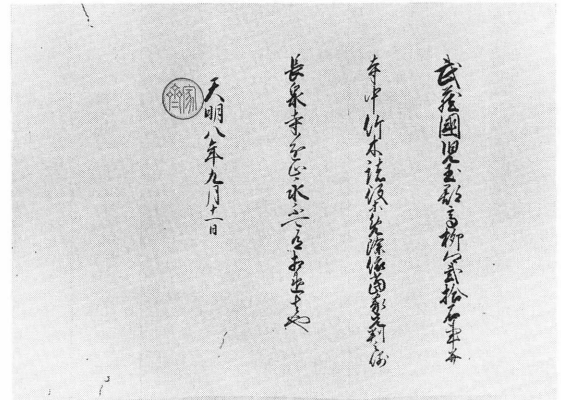 武蔵國児玉郡高柳公貳拾石事并
寺中竹木諸役等免除依當家先判之例
長泉寺進止永不可有相違者也
天明八年九月十一日
家齊